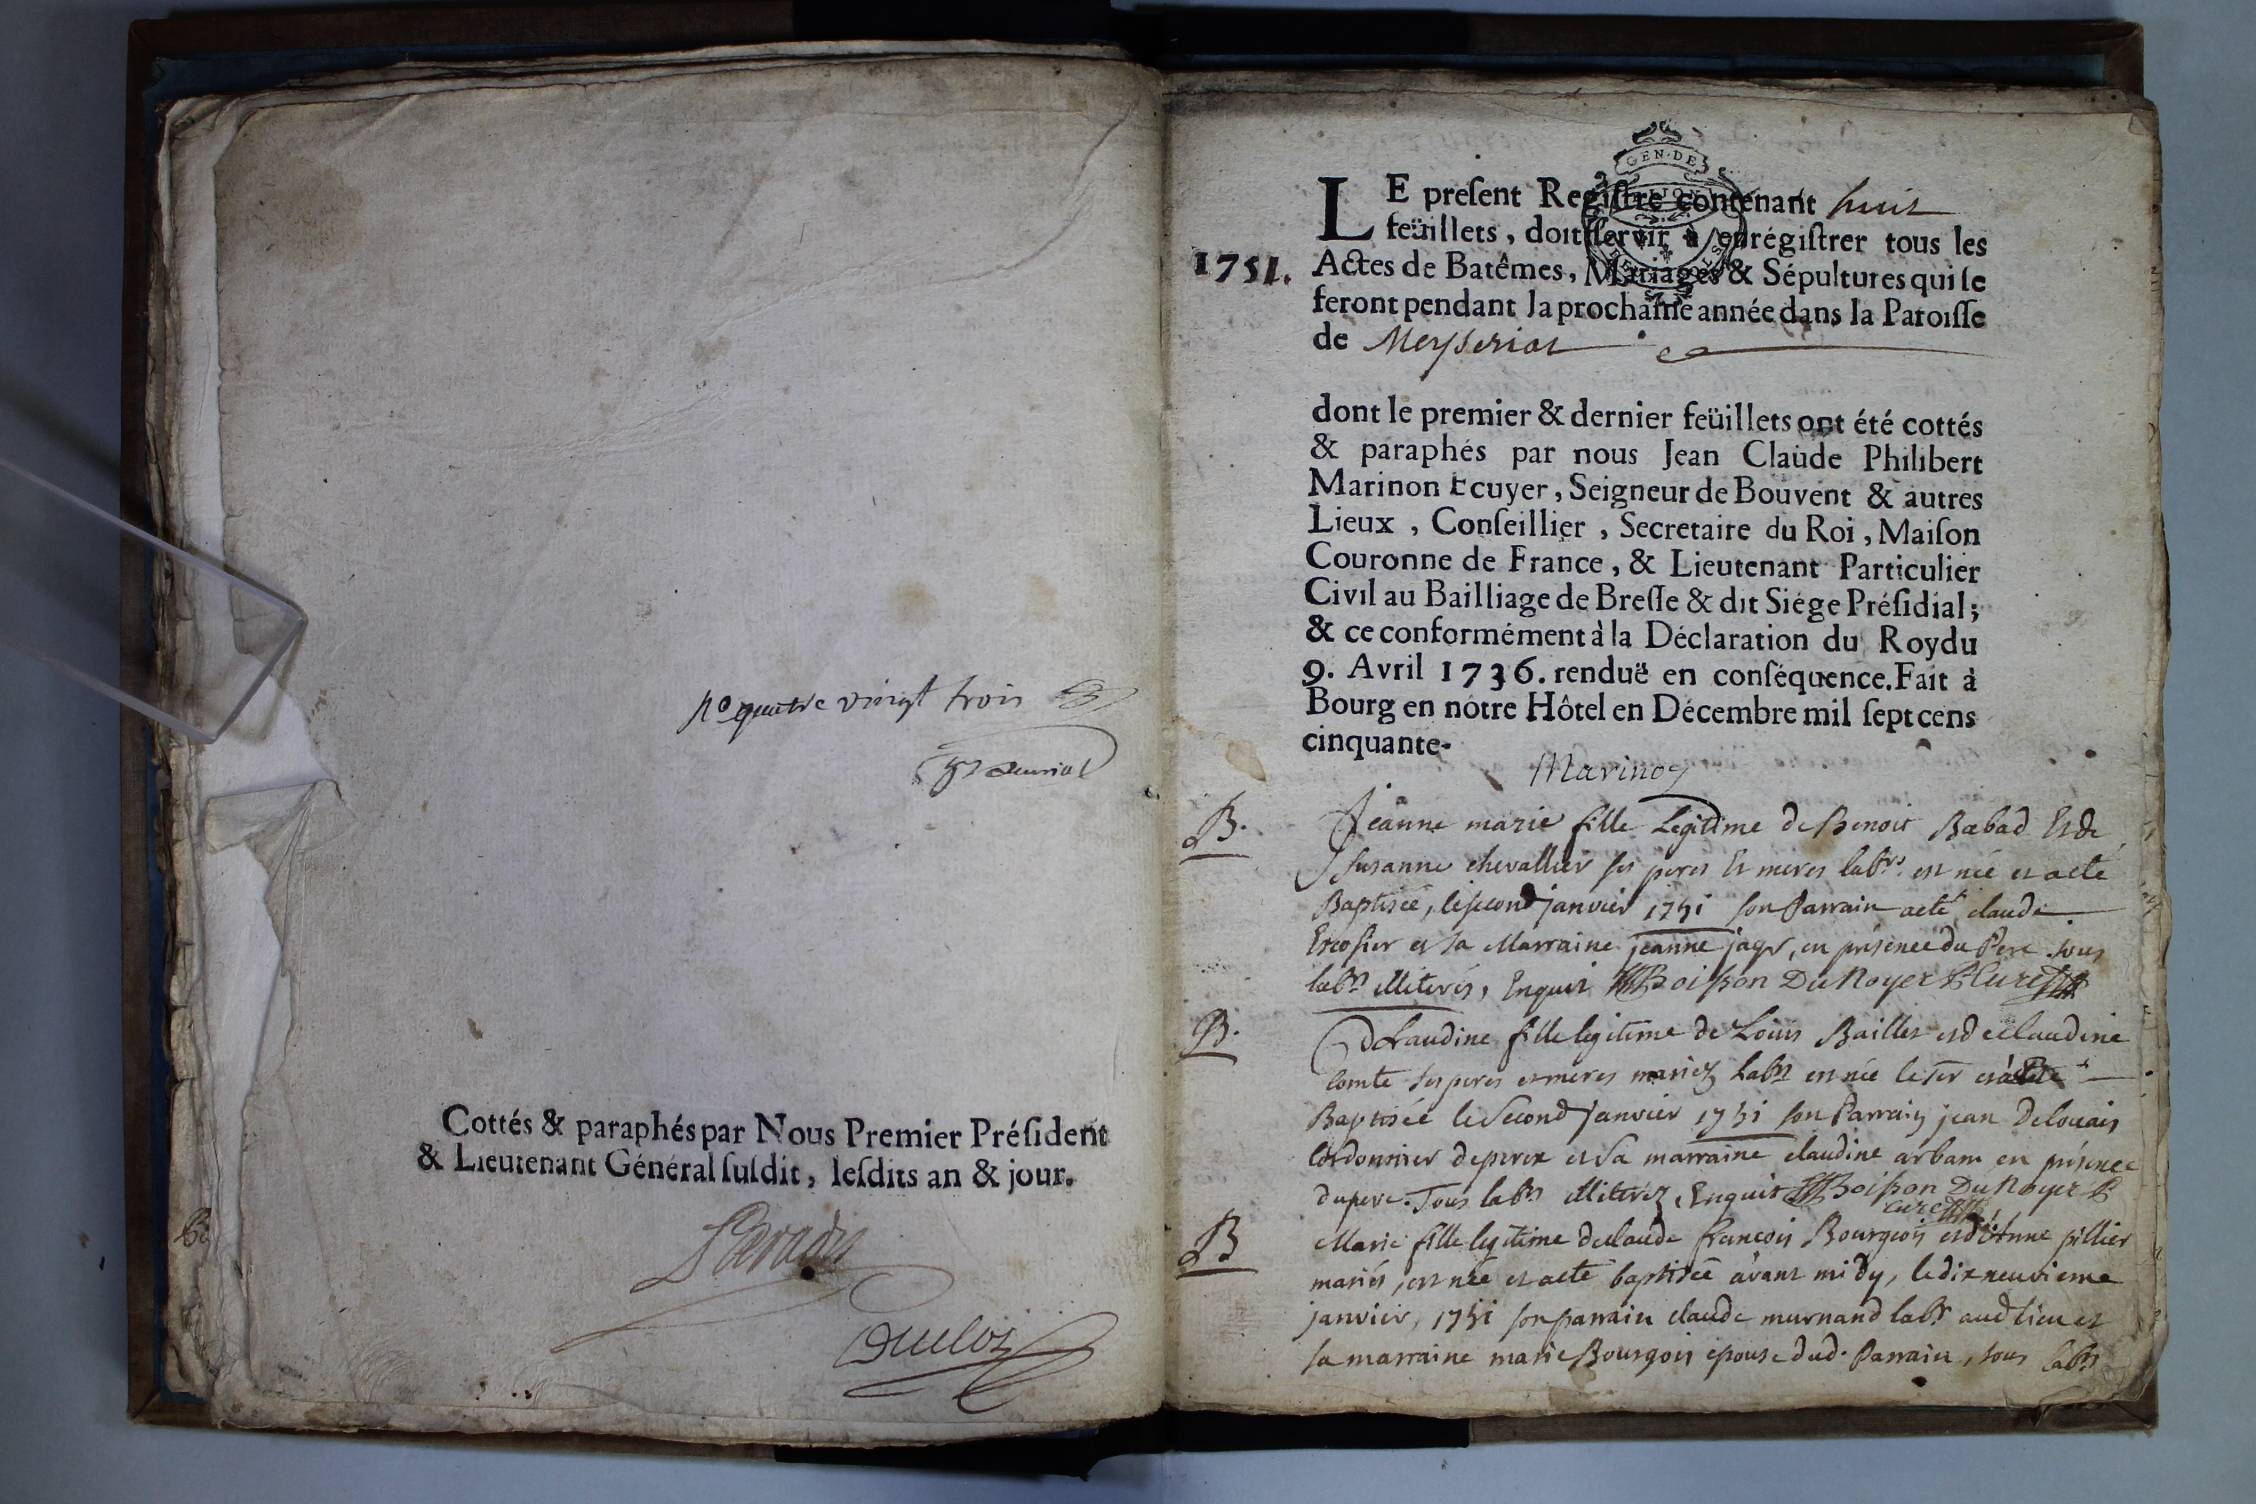 no quatre vingt trois
Cottés & paraphés par Nous Premier Préſident
& Lieutenant Général ſuſdit, leſdits an & jour.
Duclos
GEN·DE
1751.
LE preſent Regiſtre contenant huit
feüillets, doit ſervir à enrégiſtrer tous les
Actes de Batêmes, Mariages & Sépultures qui ſe
feront pendant la prochaine année dans la Paroiſſe
de Meysseriat
dont le premier & dernier feüillets ont été cottés
& paraphés par nous Jean Claude Philibert
Marinon Ecuyer, Seigneur de Bouvent & autres
Lieux, Conſeillier, Secretaire du Roi, Maiſon
Couronne de France, & Lieutenant Particulier
Civil au Bailliage de Breſſe & dit Siége Préſidial;
& ce conformément à la Déclaration du Roy du
9. Avril 1736. renduë en conſéquence. Fait à
Bourg en nôtre Hôtel en Décembre mil ſept cens
cinquante.
Marinon
B. Jeanne marie fille Legitime de Benoit Babad Et de
Susanne chevallier ses peres Et meres labrs. est née et a eté
Baptisée, le second janvier 1751 son Parrain a eté claude
et sa Marraine jeanne, en présence du Pere tous
labrs illiterés, Enquis Boisson Du Noyer P. Curé
B. Claudine fille legitime de Louis Baillet et de claudine
comte ses peres et meres mariez labrs est née le 1er et a eté
Baptisée le Second Janvier 1751 son Parrain jean Delouais
Cordonnier et sa marraine claudine arbant en présence
du pere. Tous labrs illiterez, Enquis Boisson Du Noyer P.
Curé
B Marie fille legitime de claude francois Bourgeois et d'Anne pillier
mariés, est née et a eté baptisée avant midy, le dix neuvieme
janvier, 1751 son parrain claude murnand labr. aud lieu et
sa marraine marie Bourgois epouse dud. Parrain, tous labrs